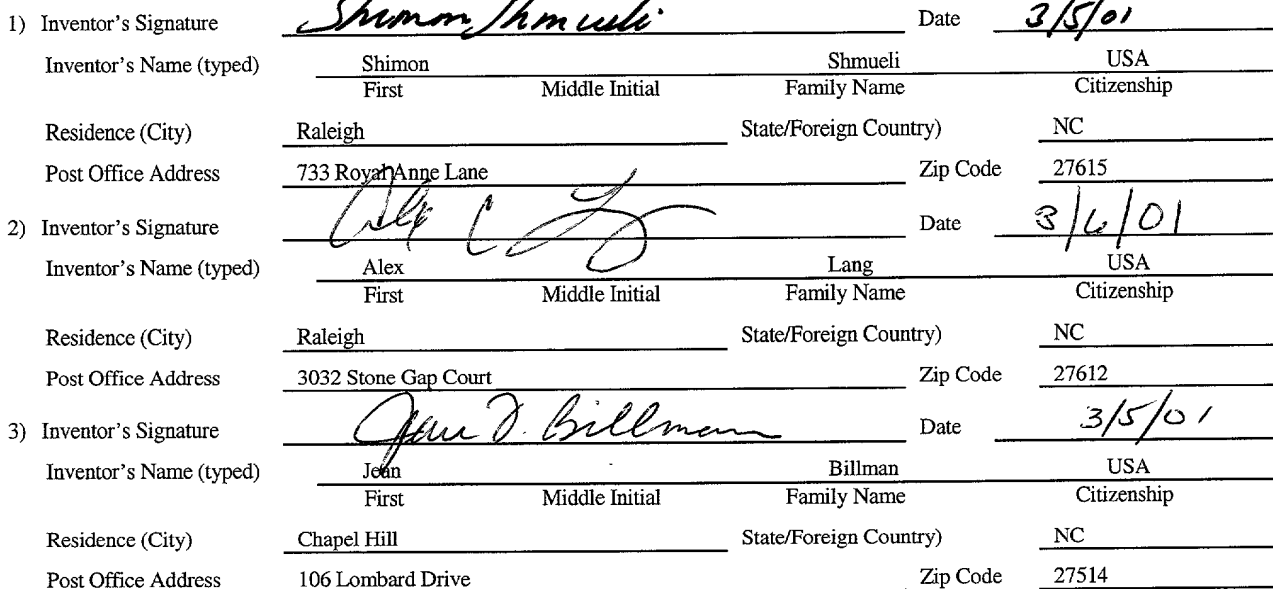 1) Inventor's Signature Shimon Shmueli Date 3/5/01
Inventor's Name (typed) Shimon Shmueli USA
First Middle Initial Family Name Citizenship
Residence (City) Raleigh State/Foreign Country) NC
Post Office Address 733 Royal Anne Lane Zip Code 27615
2) Inventor's Signature Alex C Date 3/6/01
Inventor's Name (typed) Alex Lang USA
First Middle Initial Family Name Citizenship
Residence (City) Raleigh State/Foreign Country) NC
Post Office Address 3032 Stone Gap Court Zip Code 27612
3) Inventor's Signature D. Billman Date 3/5/01
Inventor's Name (typed) Jean Billman USA
First Middle Initial Family Name Citizenship
Residence (City) Chapel Hill State/Foreign Country) NC
Post Office Address 106 Lombard Drive Zip Code 27514